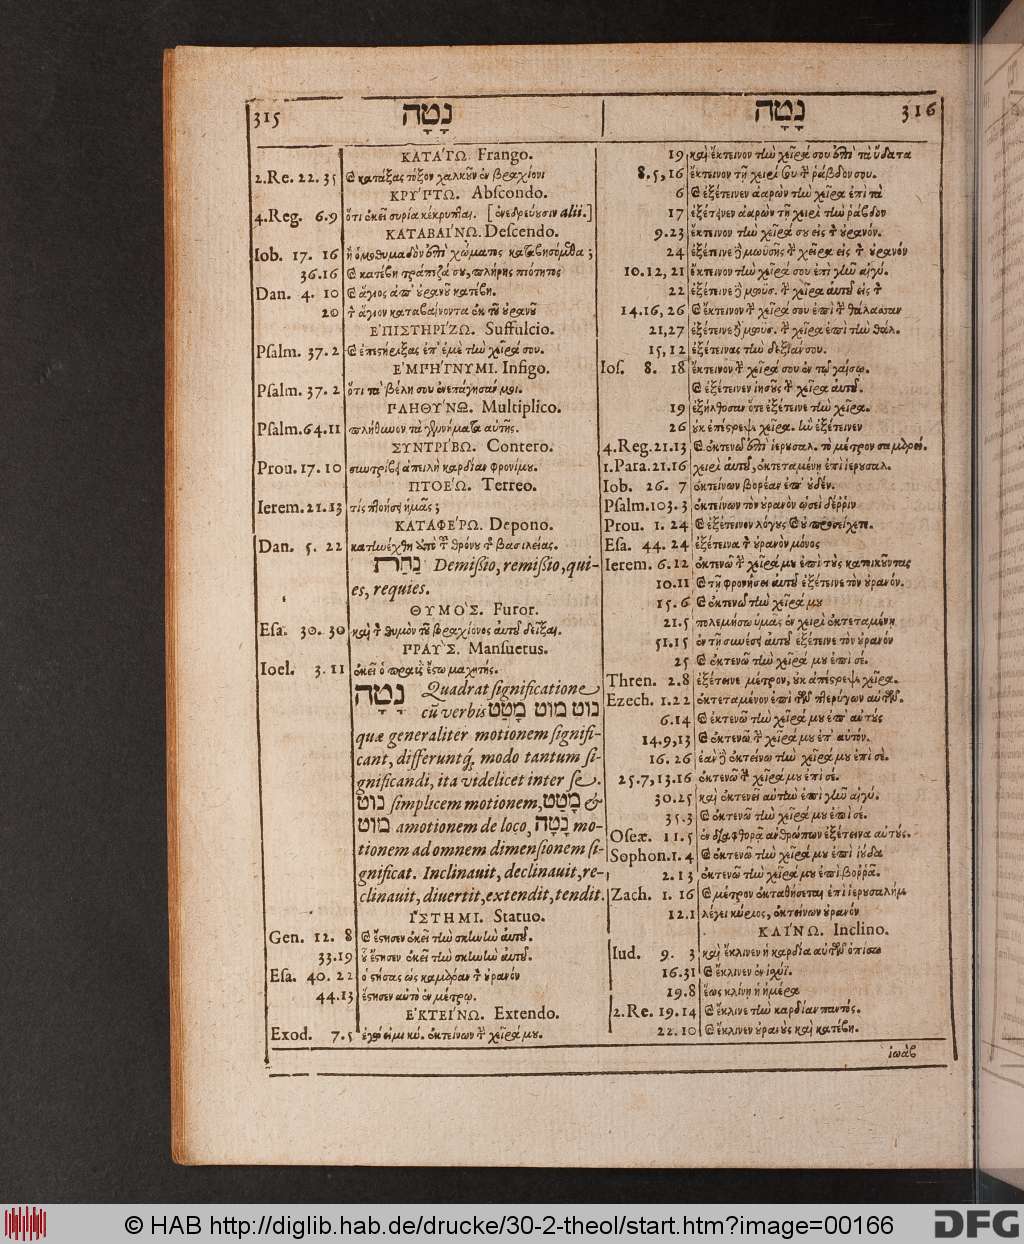 315 נָטָה
ΚΑΤΑΓΩ Frango.
2.Re. 22. 35 κατάξας τόξον χαλκοῦν ἐν βραχίονι
ΚΡΥΠΤΩ. Abscondo.
4.Reg. 6.9 ὅτι ἐκεῖ συρία κέκρυπται. [ἐνεδρεύουσιν alii.]
ΚΑΤΑΒΑΙΝΩ. Descendo.
Iob. 17. 16 ἢ ὁμοθυμαδὸν ἐπὶ χώματος καταβησόμεθα;
36.16 κατέβη τράπεζά σου, πλήρης πιότητος
Dan. 4. 10 ἅγιος ἀπ' οὐρανοῦ κατέβη.
20 ἅγιον καταβαίνοντα ἐκ τοῦ οὐρανοῦ
ΕΠΙΣΤΗΡΙΖΩ. Suffulcio.
Psalm. 37. 2 ἐπεστήριξας ἐπ' ἐμὲ τὴν χεῖρά σου.
ΕΜΠΗΓΝΥΜΙ. Infigo.
Psalm. 37. 2 ὅτι τὰ βέλη σου ἐνεπάγησάν μοι.
ΠΛΗΘΥΝΩ. Multiplico.
Psalm. 64. 11 πλήθυνον τὰ γεννήματα αὐτῆς.
ΣΥΝΤΡΙΒΩ. Contero.
Prou. 17. 10 συντρίβει ἀπειλὴ καρδίαν φρονίμου.
ΠΤΟΕΩ. Terreo.
Ierem. 21. 13 τίς πτοήσει ἡμᾶς;
ΚΑΤΑΦΕΡΩ. Depono.
Dan. 5. 22 κατηνέχθη ἀπὸ τοῦ θρόνου τῆς βασιλείας.
נַחַת Demissio, remissio, qui-
es, requies.
ΘΥΜΟΣ. Furor.
Esa. 30. 30 καὶ τὸν θυμὸν τοῦ βραχίονος αὐτοῦ δεῖξαι.
ΠΡΑΥΣ. Mansuetus.
Ioel. 3. 11 ἐκεῖ ὁ πραῢς ἔστω μαχητής.
נָטָה Quadrat significatione
cũ verbis מָטַט מוט נוט
quæ generaliter motionem signifi-
cant, differuntq́; modo tantum si-
gnificandi, ita videlicet inter se.
נוט simplicem motionem, מָטַט &
מוט amotionem de loco, נָטָה mo-
tionem ad omnem dimensionem si-
gnificat. Inclinauit, declinauit, re-
clinauit, diuertit, extendit, tendit.
ΙΣΤΗΜΙ. Statuo.
Gen. 12. 8 ἔστησεν ἐκεῖ τὴν σκηνὴν αὐτοῦ.
33.19 οὗ ἔστησεν ἐκεῖ τὴν σκηνὴν αὐτοῦ.
Esa. 40. 22 ὁ στήσας ὡς καμάραν τὸν οὐρανόν
44.13 ἔστησεν αὐτὸ ἐν μέτρῳ.
ΕΚΤΕΙΝΩ. Extendo.
Exod. 7.5 ἐγώ εἰμι κύ. ἐκτείνων τὴν χεῖρά μου.
נָטָה 316
19 καὶ ἔκτεινον τὴν χεῖρά σου ἐπὶ τὰ ὕδατα
8.5,16 ἔκτεινον τῇ χειρί σου τὴν ῥάβδον σου.
6 ἐξέτεινεν ἀαρὼν τὴν χεῖρα ἐπὶ τὰ
17 ἐξέτεινεν ἀαρὼν τῇ χειρὶ τὴν ῥάβδον
9.23 ἔκτεινον τὴν χεῖρά σου εἰς τὸν οὐρανόν.
24 ἐξέτεινε δὲ μωϋσῆς τὴν χεῖρα εἰς τὸν οὐρανόν
10.12, 21 ἔκτεινον τὴν χεῖρά σου ἐπὶ γῆν αἰγύ.
22 ἐξέτεινε δὲ μωϋσ. τὴν χεῖρα αὐτοῦ εἰς τὸν
14.16, 26 ἔκτεινον τὴν χεῖρά σου ἐπὶ τὴν θάλασσαν
21,27 ἐξέτεινε δὲ μωϋσ. τὴν χεῖρα ἐπὶ τὴν θάλ.
15, 12 ἐξέτεινας τὴν δεξιάν σου.
Ios. 8. 18 ἔκτεινον τὴν χεῖρά σου ἐν τῷ γαίσῳ.
ἐξέτεινεν ἰησοῦς τὴν χεῖρα αὐτοῦ.
19 ἐξήλθοσαν ὅτε ἐξέτεινε τὴν χεῖρα.
26 οὐκ ἐπέστρεψε χεῖρα. ἣν ἐξέτεινεν
4.Reg. 21.13 ἐκτενῶ ἐπὶ ἱερουσαλ. τὸ μέτρον σαμαρεί.
1.Para. 21.16 χειρὶ αὐτοῦ, ἐκτεταμένη ἐπὶ ἱερουσαλ.
Iob. 26. 7 ἐκτείνων βορέαν ἐπ' οὐδέν.
Psalm. 103. 3 ἐκτείνων τὸν οὐρανὸν ὡσεὶ δέῤῥιν
Prou. 1. 24 ἐξέτεινον λόγους οὐ προσείχετε.
Esa. 44. 24 ἐξέτεινα τὸν οὐρανὸν μόνος
Ierem. 6.12 ἐκτενῶ τὴν χεῖρά μου ἐπὶ τοὺς κατοικοῦντας
10.11 τῇ φρονήσει αὐτοῦ ἐξέτεινε τὸν οὐρανόν.
15. 6 ἐκτενῶ τὴν χεῖρά μου
21.5 πολεμήσω ὑμᾶς ἐν χειρὶ ἐκτεταμένη
51.15 ἐν τῇ συνέσει αὐτοῦ ἐξέτεινε τὸν οὐρανόν
25 ἐκτενῶ τὴν χεῖρά μου ἐπὶ σέ.
Thren. 2.8 ἐξέτεινε μέτρον, οὐκ ἀπέστρεψε χεῖρα.
Ezech. 1.22 ἐκτεταμένον ἐπὶ τῶν πτερύγων αὐτῶν.
6.14 ἐκτενῶ τὴν χεῖρά μου ἐπ' αὐτούς
14.9,13 ἐκτενῶ τὴν χεῖρά μου ἐπ' αὐτόν.
16. 26 ἐὰν δὲ ἐκτείνω τὴν χεῖρά μου ἐπὶ σέ.
25.7,13.16 ἐκτενῶ τὴν χεῖρά μου ἐπὶ σέ.
30.25 καὶ ἐκτενεῖ αὐτὴν ἐπὶ γῆν αἰγύ.
35.3 ἐκτενῶ τὴν χεῖρά μου ἐπὶ σέ.
Oseæ. 11. 5 ἐν διαφθορᾷ ἀνθρώπων ἐξέτεινα αὐτούς.
Sophon. 1. 4 ἐκτενῶ τὴν χεῖρά μου ἐπὶ ἰούδα
2. 13 ἐκτενῶ τὴν χεῖρά μου ἐπὶ βοῤῥᾶ.
Zach. 1. 16 μέτρον ἐκταθήσεται ἐπὶ ἱερουσαλήμ
12.1 λέγει κύριος, ἐκτείνων οὐρανόν
ΚΛΙΝΩ. Inclino.
Iud. 9. 3 καὶ ἔκλινεν ἡ καρδία αὐτῶν ὀπίσω
16.31 ἔκλινεν ἐν ἰσχύϊ.
19.8 ἕως κλίνῃ ἡ ἡμέρα
2.Re. 19.14 ἔκλινε τὴν καρδίαν παντός.
22. 10 ἔκλινεν οὐρανοὺς καὶ κατέβη.
ἰωάβ
© HAB http://diglib.hab.de/drucke/30-2-theol/start.htm?image=00166
DFG